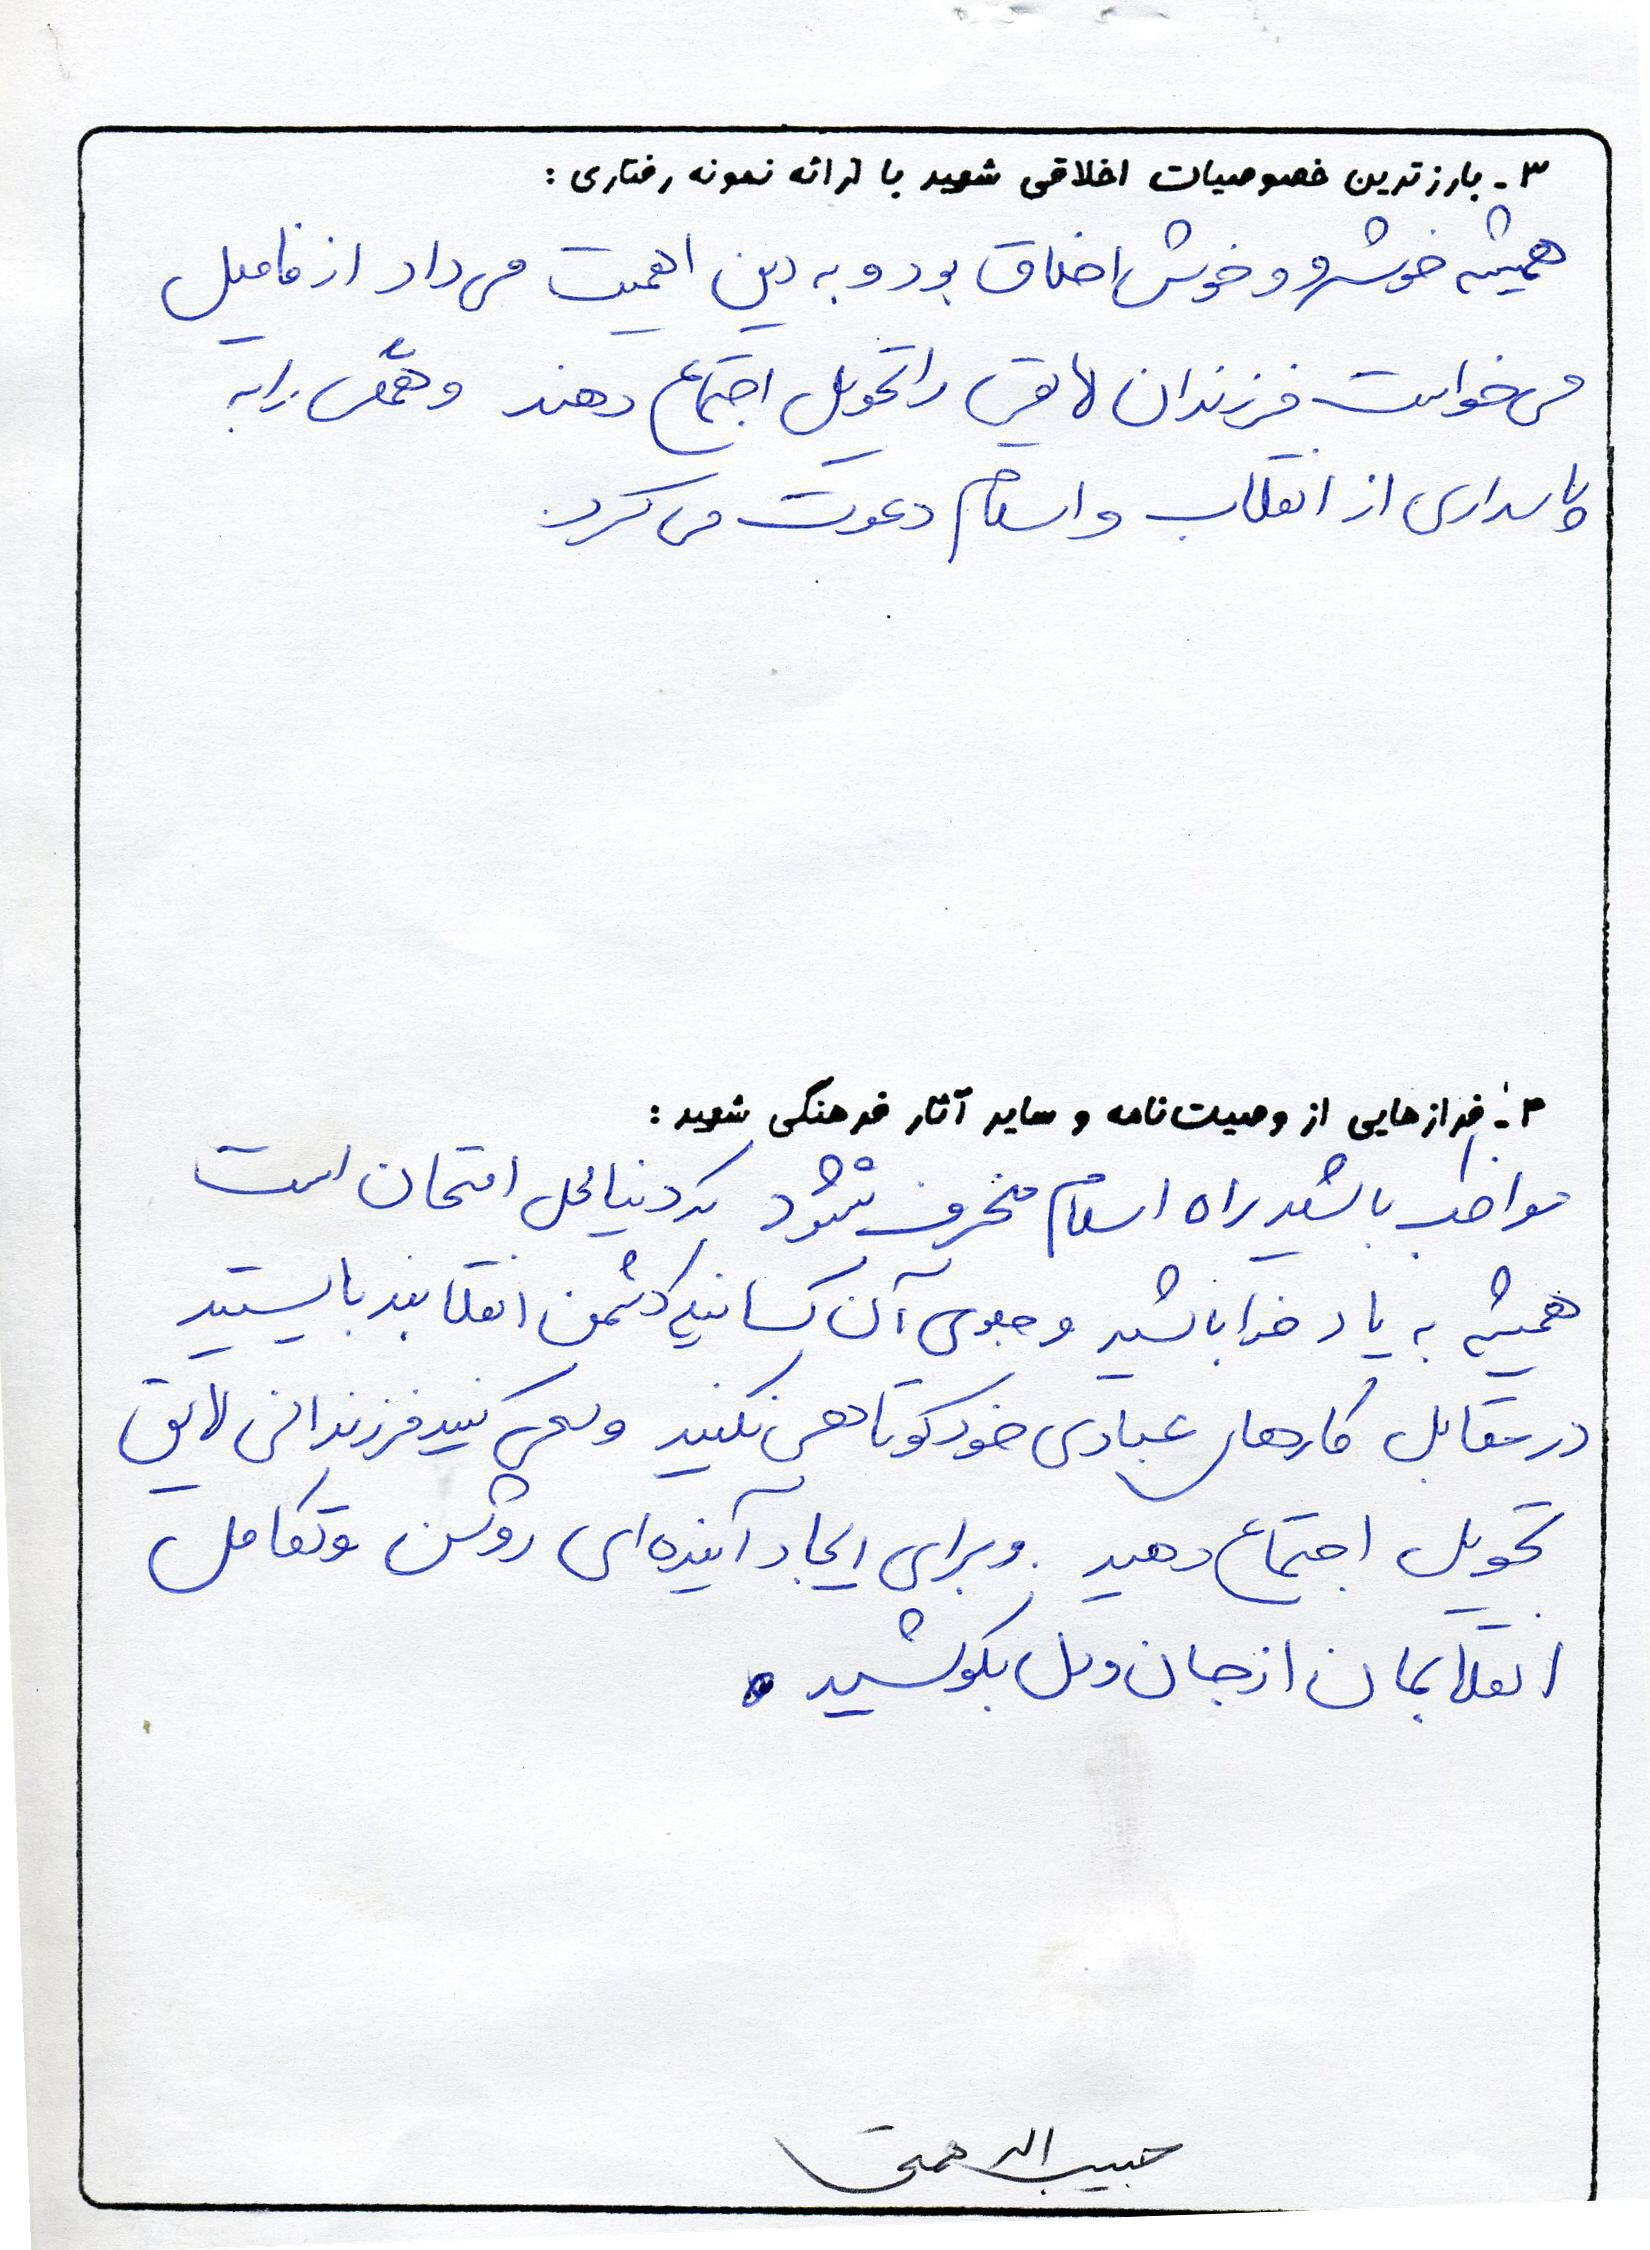 ۳ـ بارزترین خصوصیات اخلاقی شهید با ارائه نمونه رفتاری :
همیشه خوشرو و خوش اخلاق بود و به دین اهمیت می داد از فامیل
می خواست فرزندان لایقی را تحویل اجتماع دهند و همگی را به
پاسداری از انقلاب و اسلام دعوت می کرد.
۴ـ فرازهایی از وصیت‌نامه و سایر آثار فرهنگی شهید :
مواظب باشید راه اسلام منحرف نشود که دنیا محل امتحان است
همیشه به یاد خدا باشید و جلوی آن کسانیکه دشمن انقلابند بایستید
در مقابل کارهای عبادی خود کوتاهی نکنید و سعی کنید فرزندانی لایق
تحویل اجتماع دهید . و برای ایجاد آینده ای روشن و تکامل
انقلابمان از جان و دل بکوشید .
حبیب اله همتی